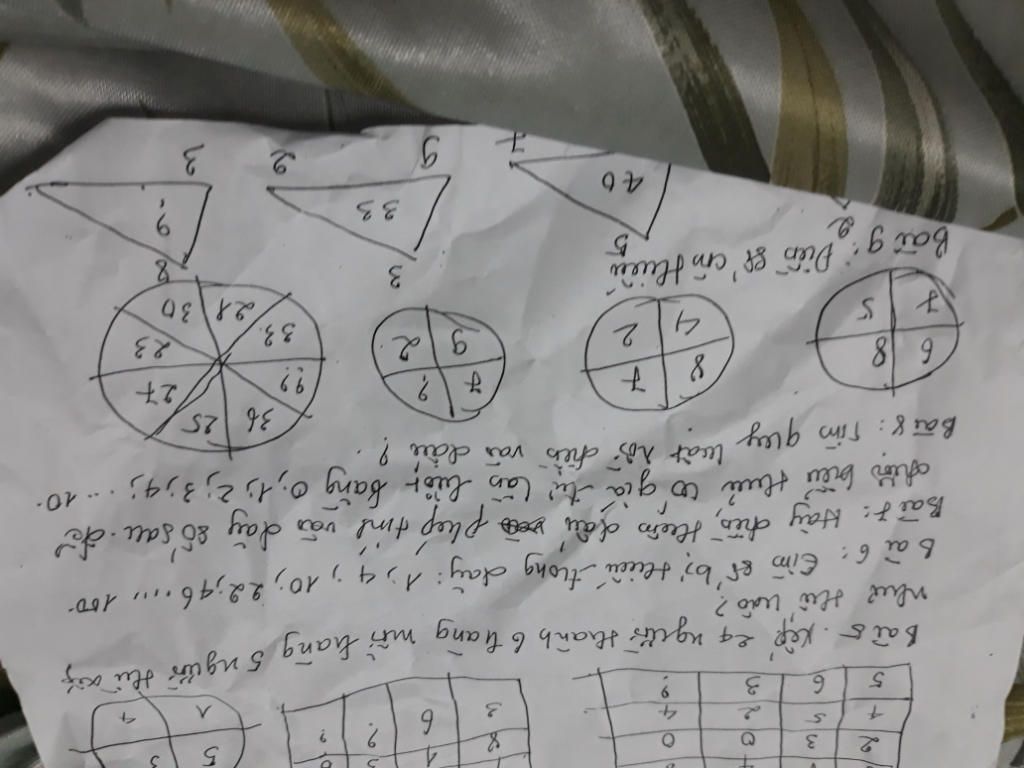 2 3 0 0
1 5 2 4
5 6 3 ?
3 6 ? ?
5 3
1 4
Bài 5. Xếp 24 người thành 6 hàng mỗi hàng 5 người thì xếp
như thế nào?
Bài 6: Tìm số bị thiếu trong dãy: 1; 4; 10; 22; 46 .... 100.
Bài 7: Hãy điền thêm dấu phép tính vào dãy số sau để
biểu thức có giá trị lần lượt bằng 0; 1; 2; 3; 4; ... 10.
Bài 8: Tìm quy luật rồi điền vào dấu ?
6 8
7 5
8 7
4 2
7 ?
9 2
36 25
?? 27
33 23
21 30
Bài 9: Điền số còn thiếu
2
5
40
7
3
33
9 2
8
9
3